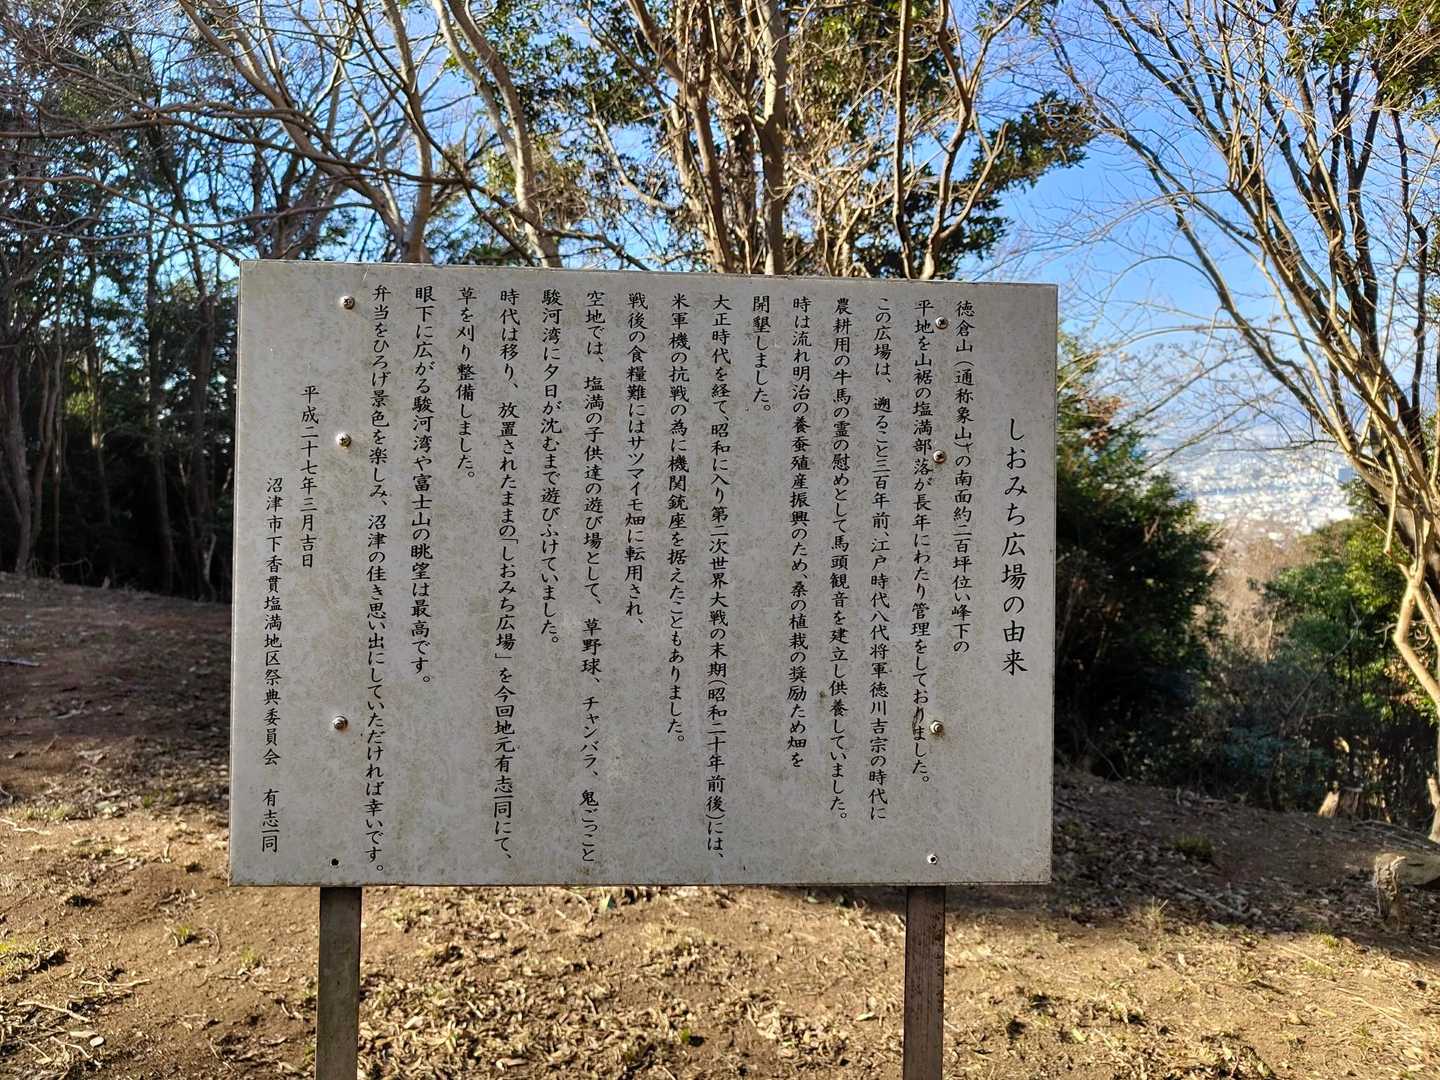 しおみち広場の由来
徳倉山(通称象山)の南面約二百坪位い峰下の
平地を山裾の塩満部落が長年にわたり管理をしておりました。
この広場は、遡ること三百年前、江戸時代八代将軍徳川吉宗の時代に
農耕用の牛馬の霊の慰めとして馬頭観音を建立し供養していました。
時は流れ明治の養蚕殖産振興のため、桑の植栽の奨励ため畑を
開墾しました。
大正時代を経て、昭和に入り第二次世界大戦の末期(昭和二十年前後)には、
米軍機の抗戦の為に機関銃座を据えたこともありました。
戦後の食糧難にはサツマイモ畑に転用され、
空地では、塩満の子供達の遊び場として、草野球、チャンバラ、鬼ごっこと
駿河湾に夕日が沈むまで遊びふけていました。
時代は移り、放置されたままの「しおみち広場」を今回地元有志一同にて、
草を刈り整備しました。
眼下に広がる駿河湾や富士山の眺望は最高です。
弁当をひろげ景色を楽しみ、沼津の佳き思い出にしていただければ幸いです。
平成二十七年三月吉日
沼津市下香貫塩満地区祭典委員会 有志一同